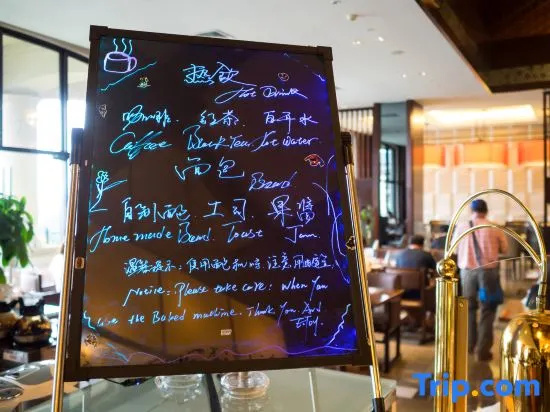 热饮
Hot Drink
咖啡、红茶、白开水
Coffee Black Tea, Hot water
面包
Bread
自制 土司、果酱
Home made Bread. Toast Jam
温馨提示：使用 时，注意用电安全
Notice: Please take care: when You
Use the Baked machine. Thank You And
Enjoy.
Trip.com